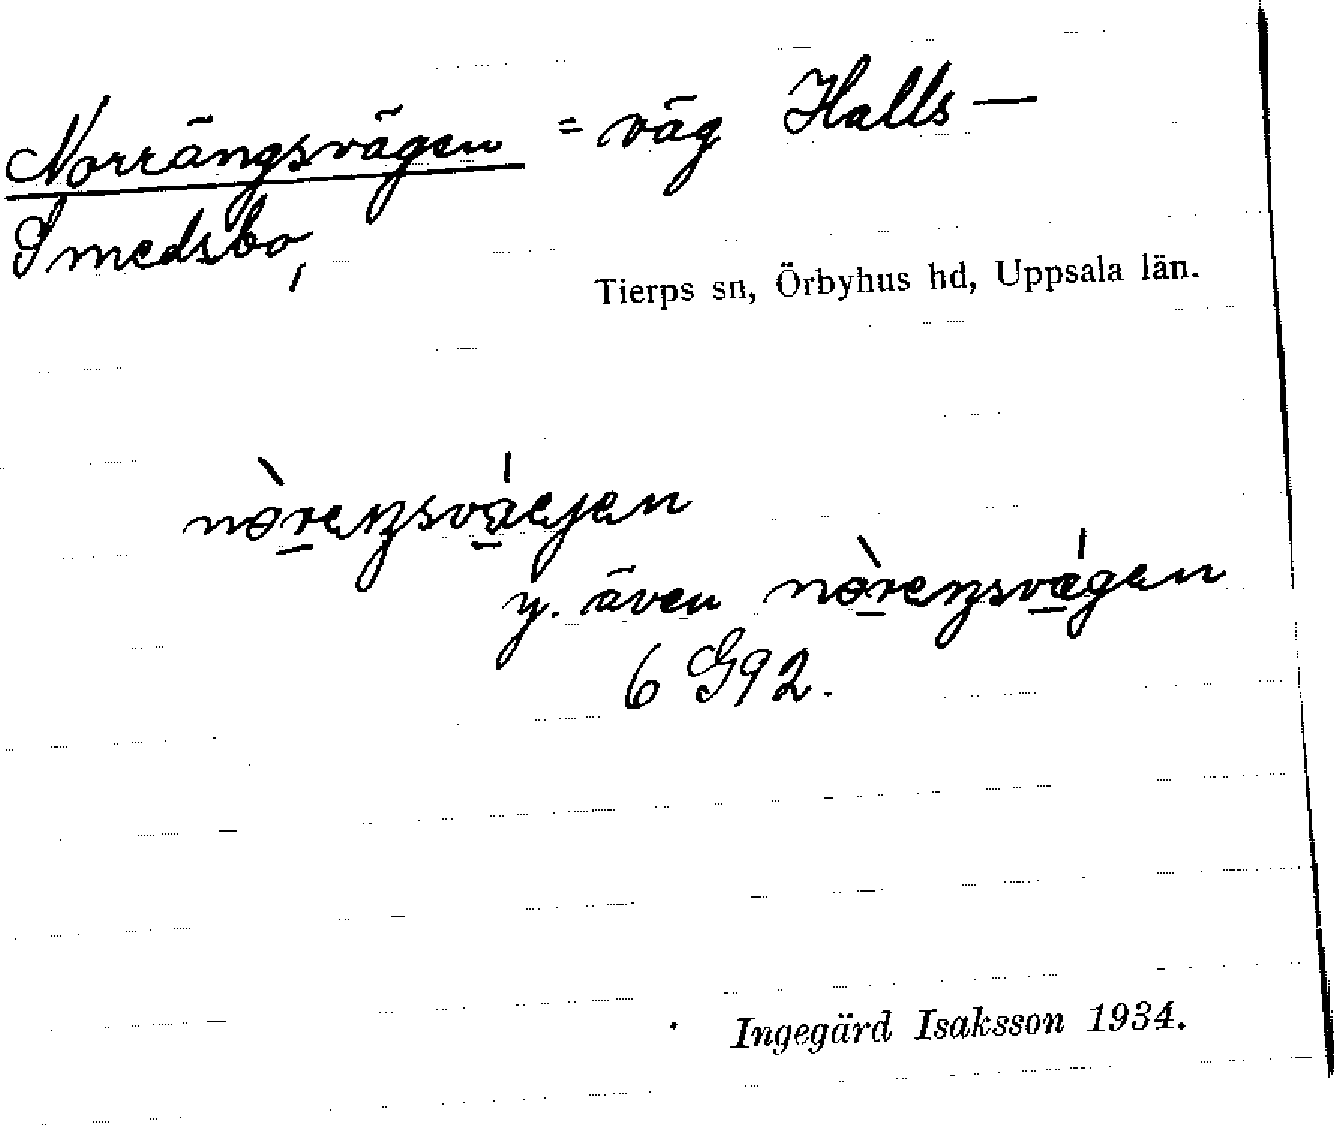 Norrängsvägen = väg Halls—
Smedsbo,
Tierps sn, Örbyhus hd, Uppsala län.
nòreŋsváejen
y. även nòreŋsvǽgen
6 G92.
Ingegärd Isaksson 1934.